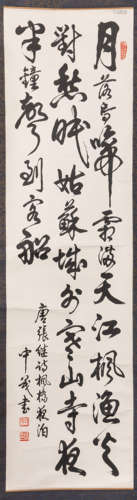 月落烏啼霜滿天江楓漁火
對愁眠姑蘇城外寒山寺夜
半鐘聲到客船
唐張继詩楓橋夜泊
中茂書